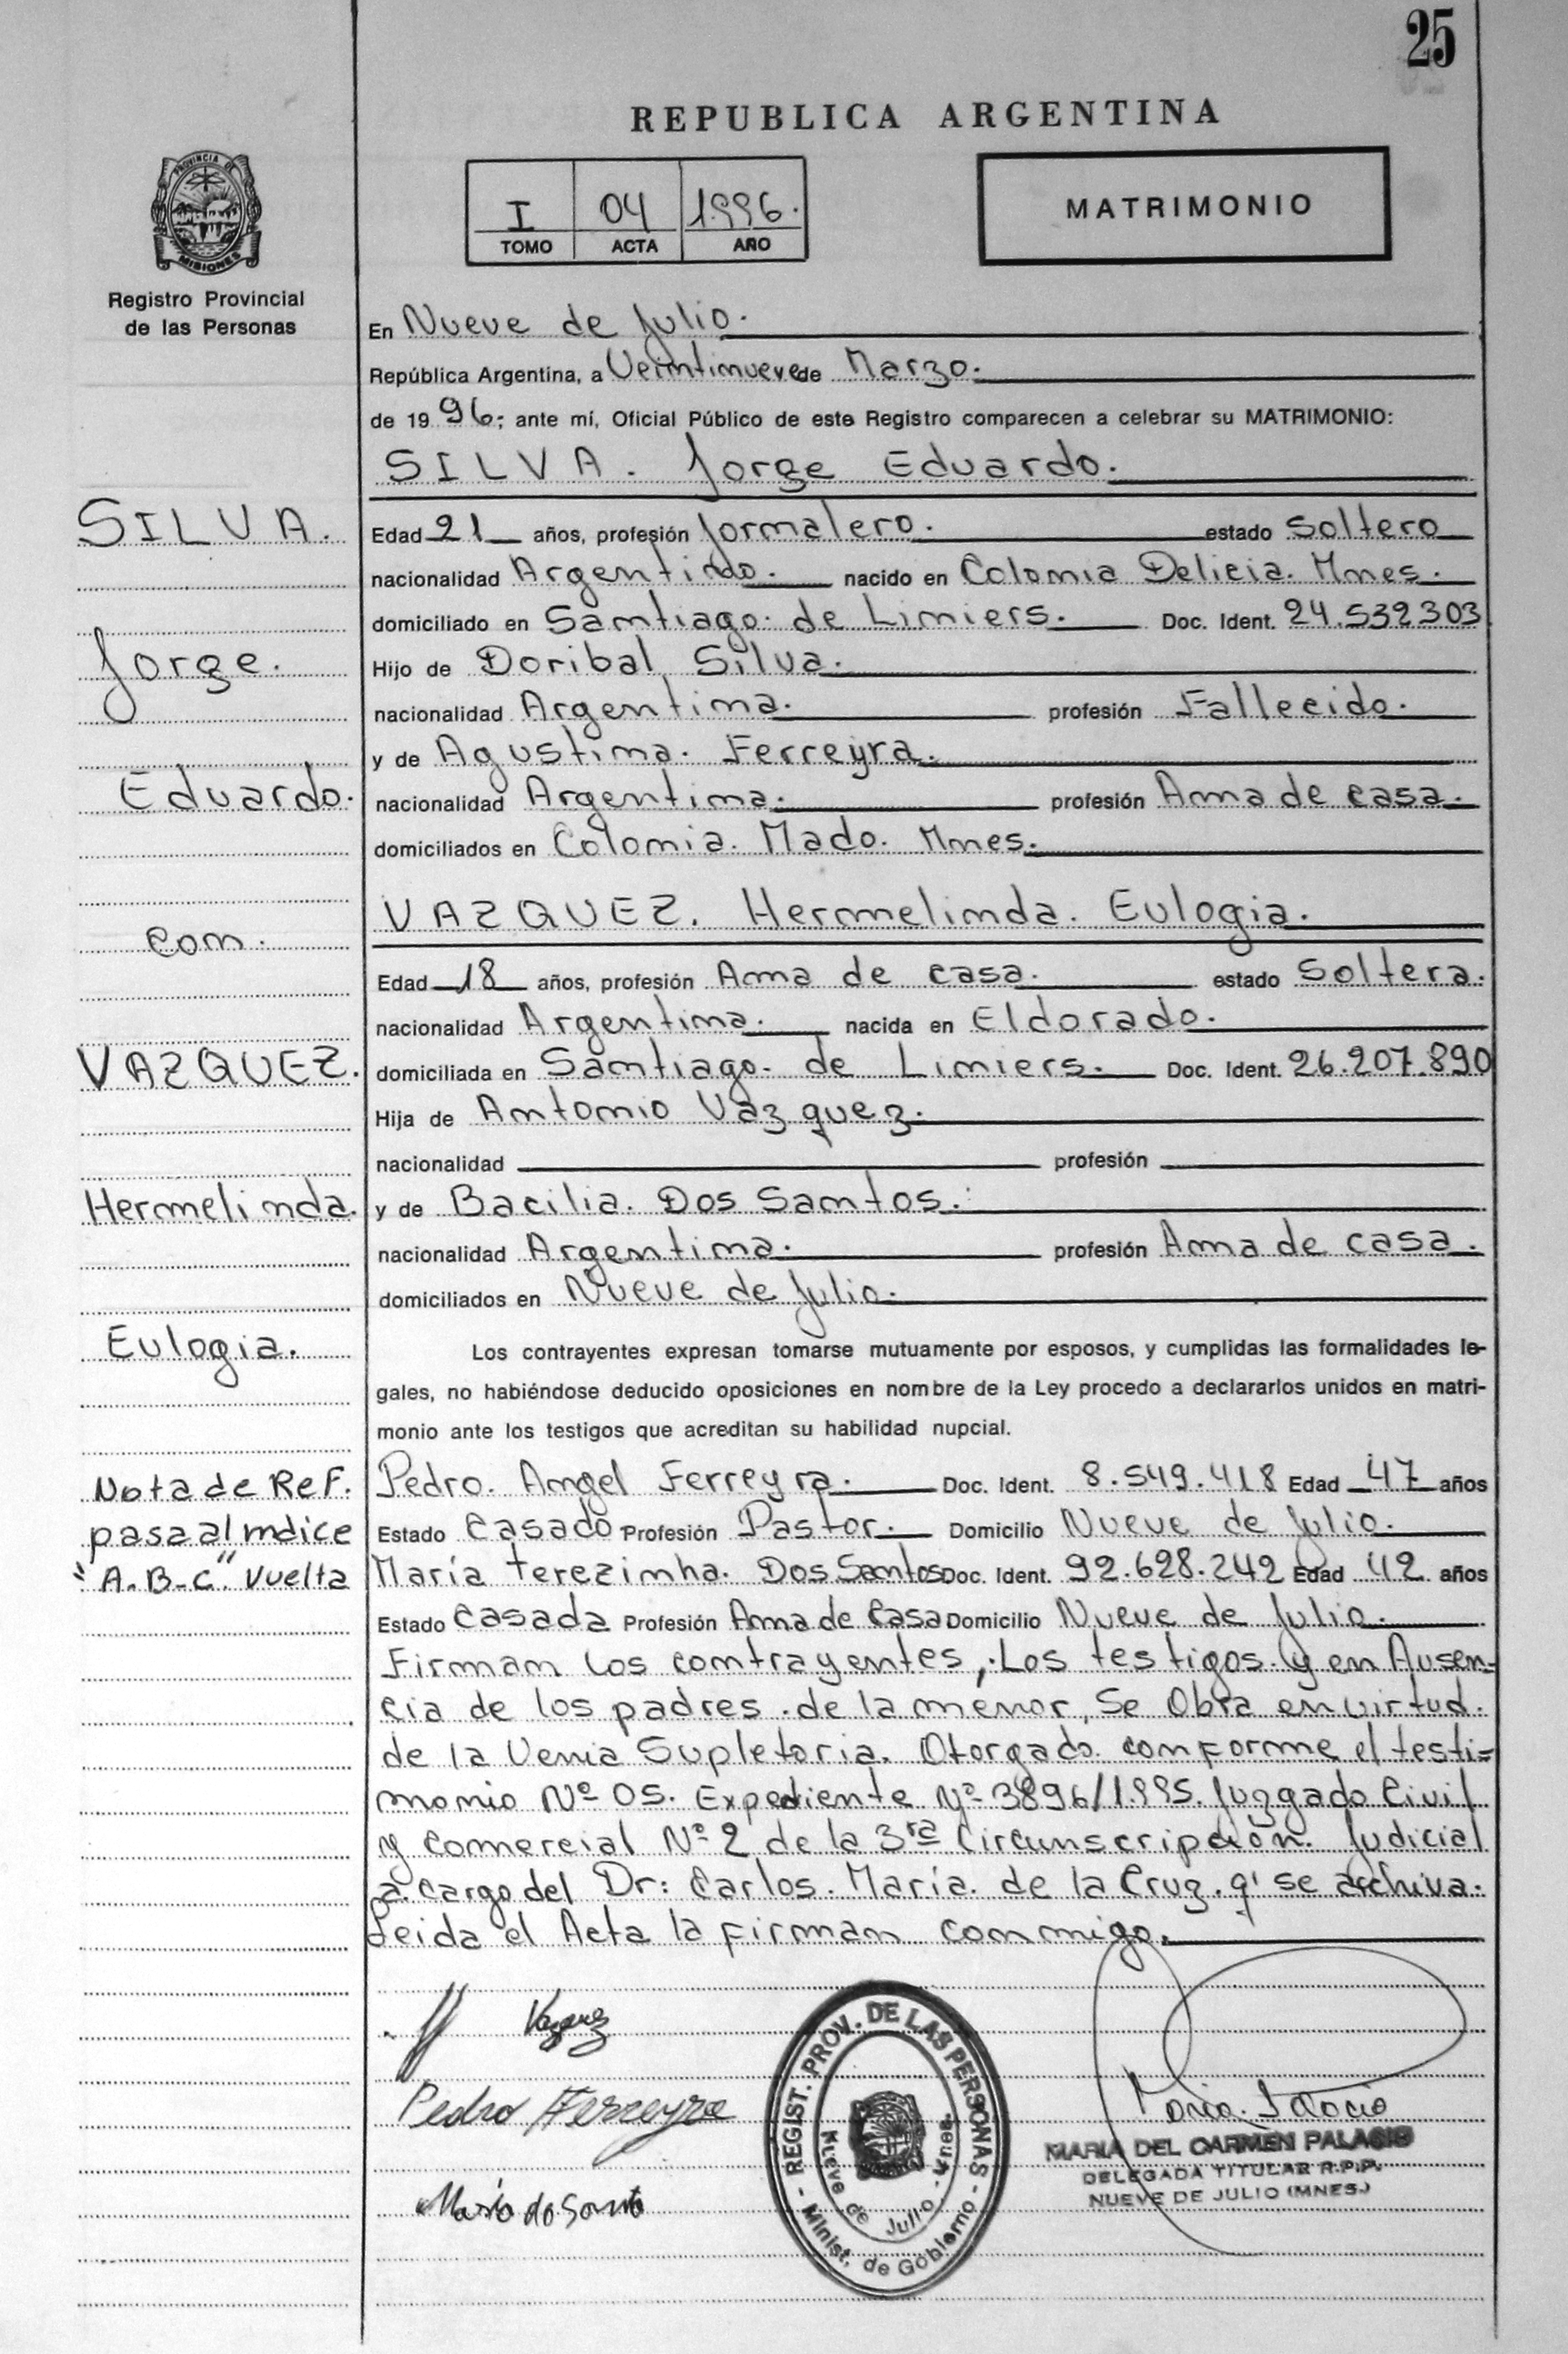 25
REPUBLICA ARGENTINA
PROVINCIA DE
MISIONES
Registro Provincial
de las Personas
I 04 1996.
TOMO ACTA AÑO
MATRIMONIO
En Nueve de Julio.
República Argentina, a Veintinueve de Marzo.
de 19 96; ante mí, Oficial Público de este Registro comparecen a celebrar su MATRIMONIO:
SILVA. Jorge Eduardo.
SILVA.
Jorge.
Eduardo.
con.
VAZQUEZ.
Hermelinda.
Eulogia.
Nota de Ref.
pasa al indice
"A.B-C" Vuelta
Edad 21 años, profesión Jornalero. estado Soltero
nacionalidad Argentino. nacido en Colonia Delicia. Mnes.
domiciliado en Santiago de Liniers. Doc. Ident. 24.532303
Hijo de Doribal Silva.
nacionalidad Argentina. profesión Fallecido.
y de Agustina. Ferreyra.
nacionalidad Argentina. profesión Ama de casa.
domiciliados en Colonia. Mado. Mnes.
VAZQUEZ. Hermelinda. Eulogia.
Edad 18 años, profesión Ama de casa. estado Soltera.
nacionalidad Argentina. nacida en Eldorado.
domiciliada en Santiago. de Liniers. Doc. Ident. 26.207.890
Hija de Antonio Vazquez.
nacionalidad profesión
y de Bacilia. Dos Santos.
nacionalidad Argentina. profesión Ama de casa.
domiciliados en Nueve de Julio.
Los contrayentes expresan tomarse mutuamente por esposos, y cumplidas las formalidades le-
gales, no habiéndose deducido oposiciones en nombre de la Ley procedo a declararlos unidos en matri-
monio ante los testigos que acreditan su habilidad nupcial.
Pedro. Angel Ferreyra. Doc. Ident. 8.549.418 Edad 47 años
Estado Casado Profesión Pastor. Domicilio Nueve de Julio.
María Terezinha. Dos Santos Doc. Ident. 92.628.242 Edad 42 años
Estado Casada Profesión Ama de Casa Domicilio Nueve de Julio.
Firman los contrayentes, Los testigos. y en Ausen-
cia de los padres. de la menor, Se Obra en virtud.
de la Venia Supletoria. Otorgado conforme el testi=
monio Nº 05. Expediente Nº 3896/1.995. Juzgado Civil
y Comercial Nº 2 de la 3ra Circunscripción. Judicial
a. cargo del Dr: Carlos. María. de la Cruz. q' se archiva.
Leida el Acta la firman conmigo.
Vazquez
Pedro Ferreyra
María do Santo
REGIST. PROV. DE LAS PERSONAS
Nueve de Julio - Mnes.
- Minist. de Gobierno -
María Palacio
MARIA DEL CARMEN PALACIO
DELEGADA TITULAR R.P.P.
NUEVE DE JULIO (MNES.)